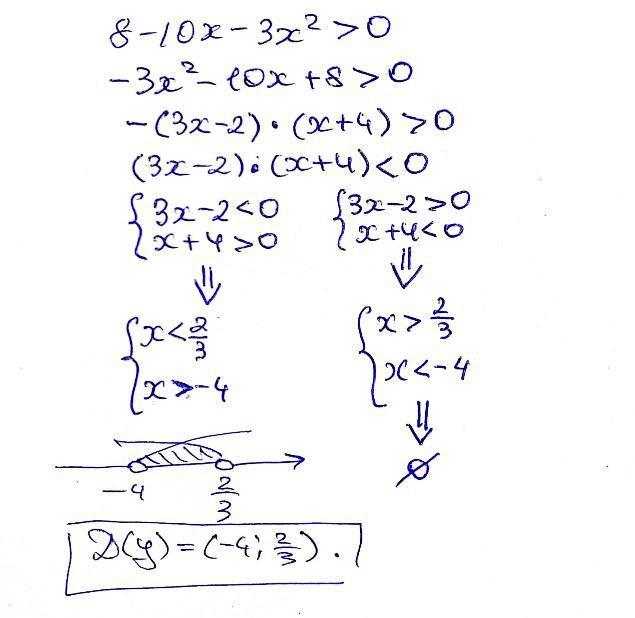 8-10x-3x²>0
-3x²-10x+8>0
-(3x-2)•(x+4)>0
(3x-2)•(x+4)<0
{3x-2<0 {3x-2>0
x+4>0 x+4<0
⇓ ⇓
{x<2/3 {x>2/3
x>-4 x<-4
⇓
∅
-4 2/3
D(y)=(-4;2/3).